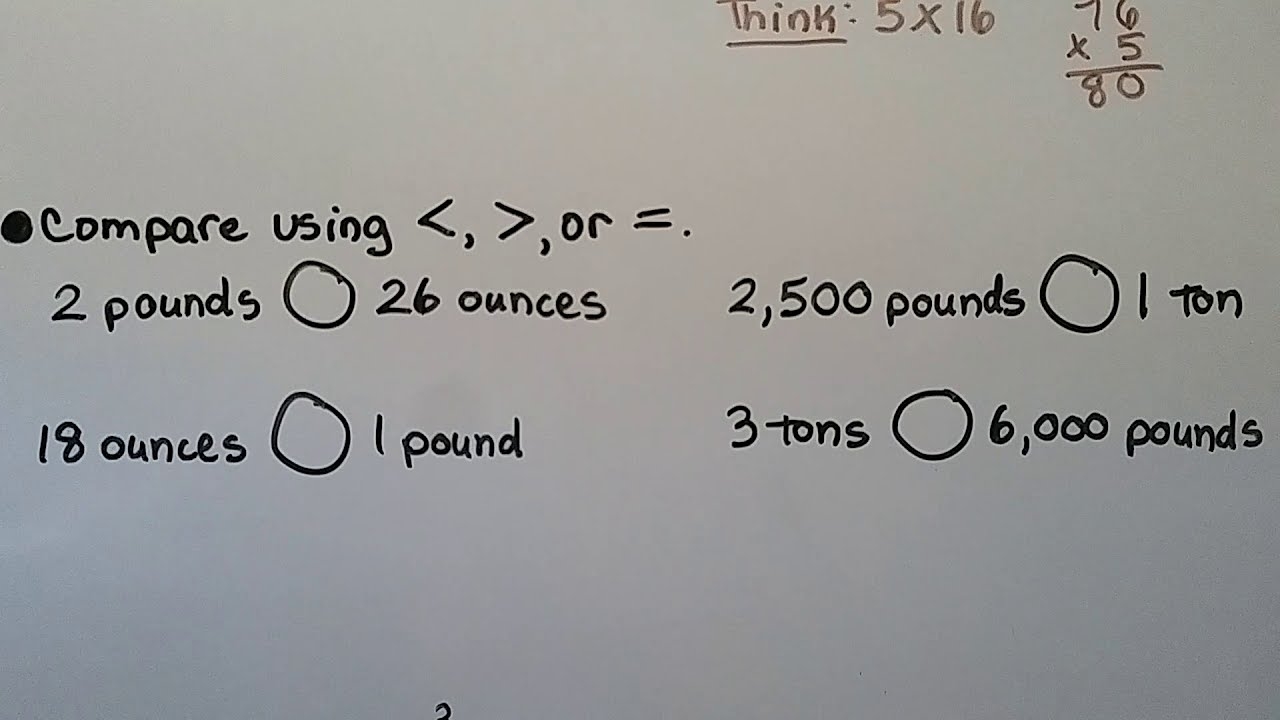 Think: 5x16
16
x 5
80
Compare using <, >, or =.
2 pounds ◯ 26 ounces
2,500 pounds ◯ 1 ton
18 ounces ◯ 1 pound
3 tons ◯ 6,000 pounds